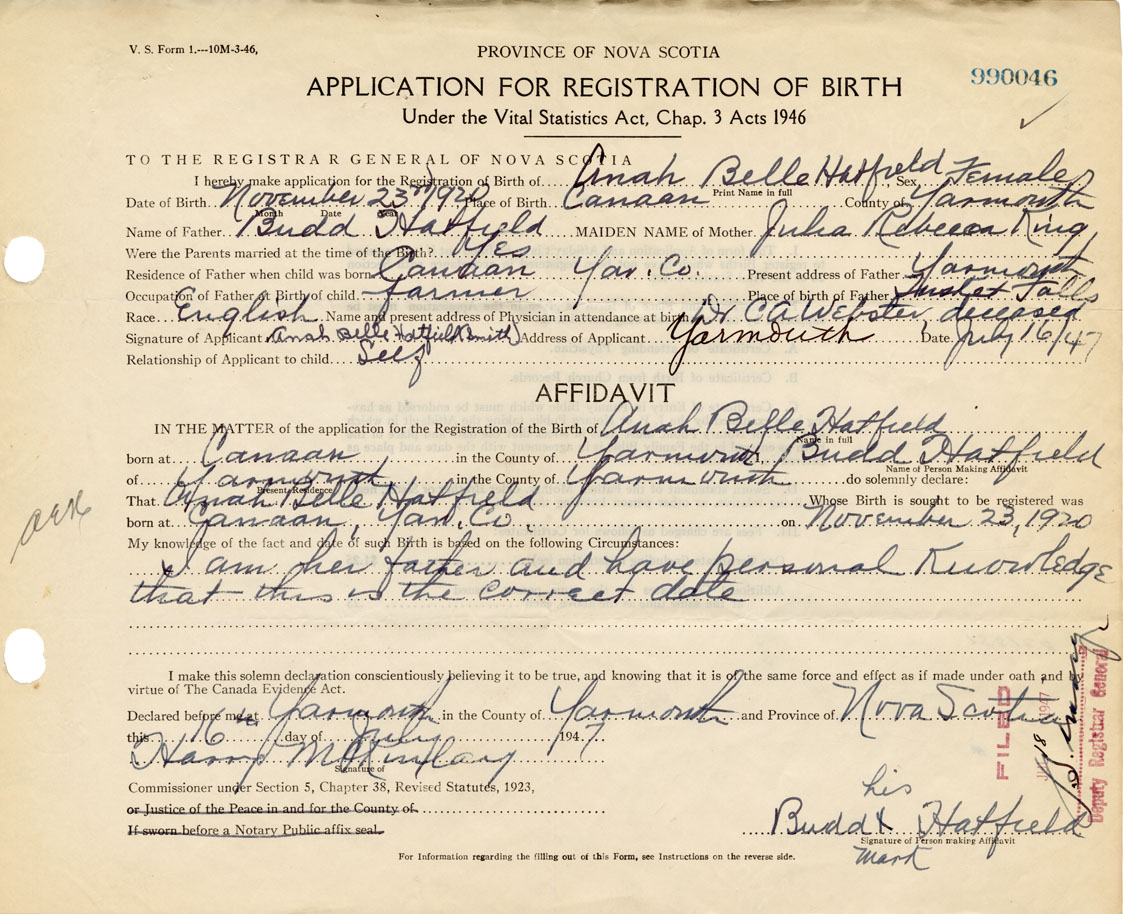 V. S. Form 1.---10M-3-46,
PROVINCE OF NOVA SCOTIA
990046
APPLICATION FOR REGISTRATION OF BIRTH
Under the Vital Statistics Act, Chap. 3 Acts 1946
TO THE REGISTRAR GENERAL OF NOVA SCOTIA
I hereby make application for the Registration of Birth of Anah Belle Hatfield, Sex Female
Print Name in full
Date of Birth November 23rd 1920 Place of Birth Canaan County of Yarmouth
Month Date Year
Name of Father Budd Hatfield MAIDEN NAME of Mother Julia Rebecca King
Were the Parents married at the time of the Birth? Yes
Residence of Father when child was born Canaan Yar. Co. Present address of Father Yarmouth
Occupation of Father at Birth of child farmer Place of birth of Father Tusket Falls
Race English Name and present address of Physician in attendance at birth Dr C A Webster deceased
Signature of Applicant (Anah Belle Hatfield Smith) Address of Applicant Yarmouth Date July 16/47
Relationship of Applicant to child Self
AFFIDAVIT
IN THE MATTER of the application for the Registration of the Birth of Anah Belle Hatfield
Name in full
born at Canaan in the County of Yarmouth I, Budd Hatfield
Name of Person Making Affidavit
of Yarmouth in the County of Yarmouth do solemnly declare:
Present Residence
That Anah Belle Hatfield Whose Birth is sought to be registered was
born at Canaan, Yar. Co. on November 23, 1920
My knowledge of the fact and date of such Birth is based on the following Circumstances:
I am her father and have personal Knowledge
that this is the correct date
I make this solemn declaration conscientiously believing it to be true, and knowing that it is of the same force and effect as if made under oath and by
virtue of The Canada Evidence Act.
Declared before me at Yarmouth in the County of Yarmouth and Province of Nova Scotia
this 16th day of July 1947
Harry McKinlay
Signature of
Commissioner under Section 5, Chapter 38, Revised Statutes, 1923,
or Justice of the Peace in and for the County of
If sworn before a Notary Public affix seal.
his
Budd X Hatfield
Signature of Person making Affidavit
mark
For Information regarding the filling out of this Form, see Instructions on the reverse side.
FILED
18 1947
Deputy Registrar General